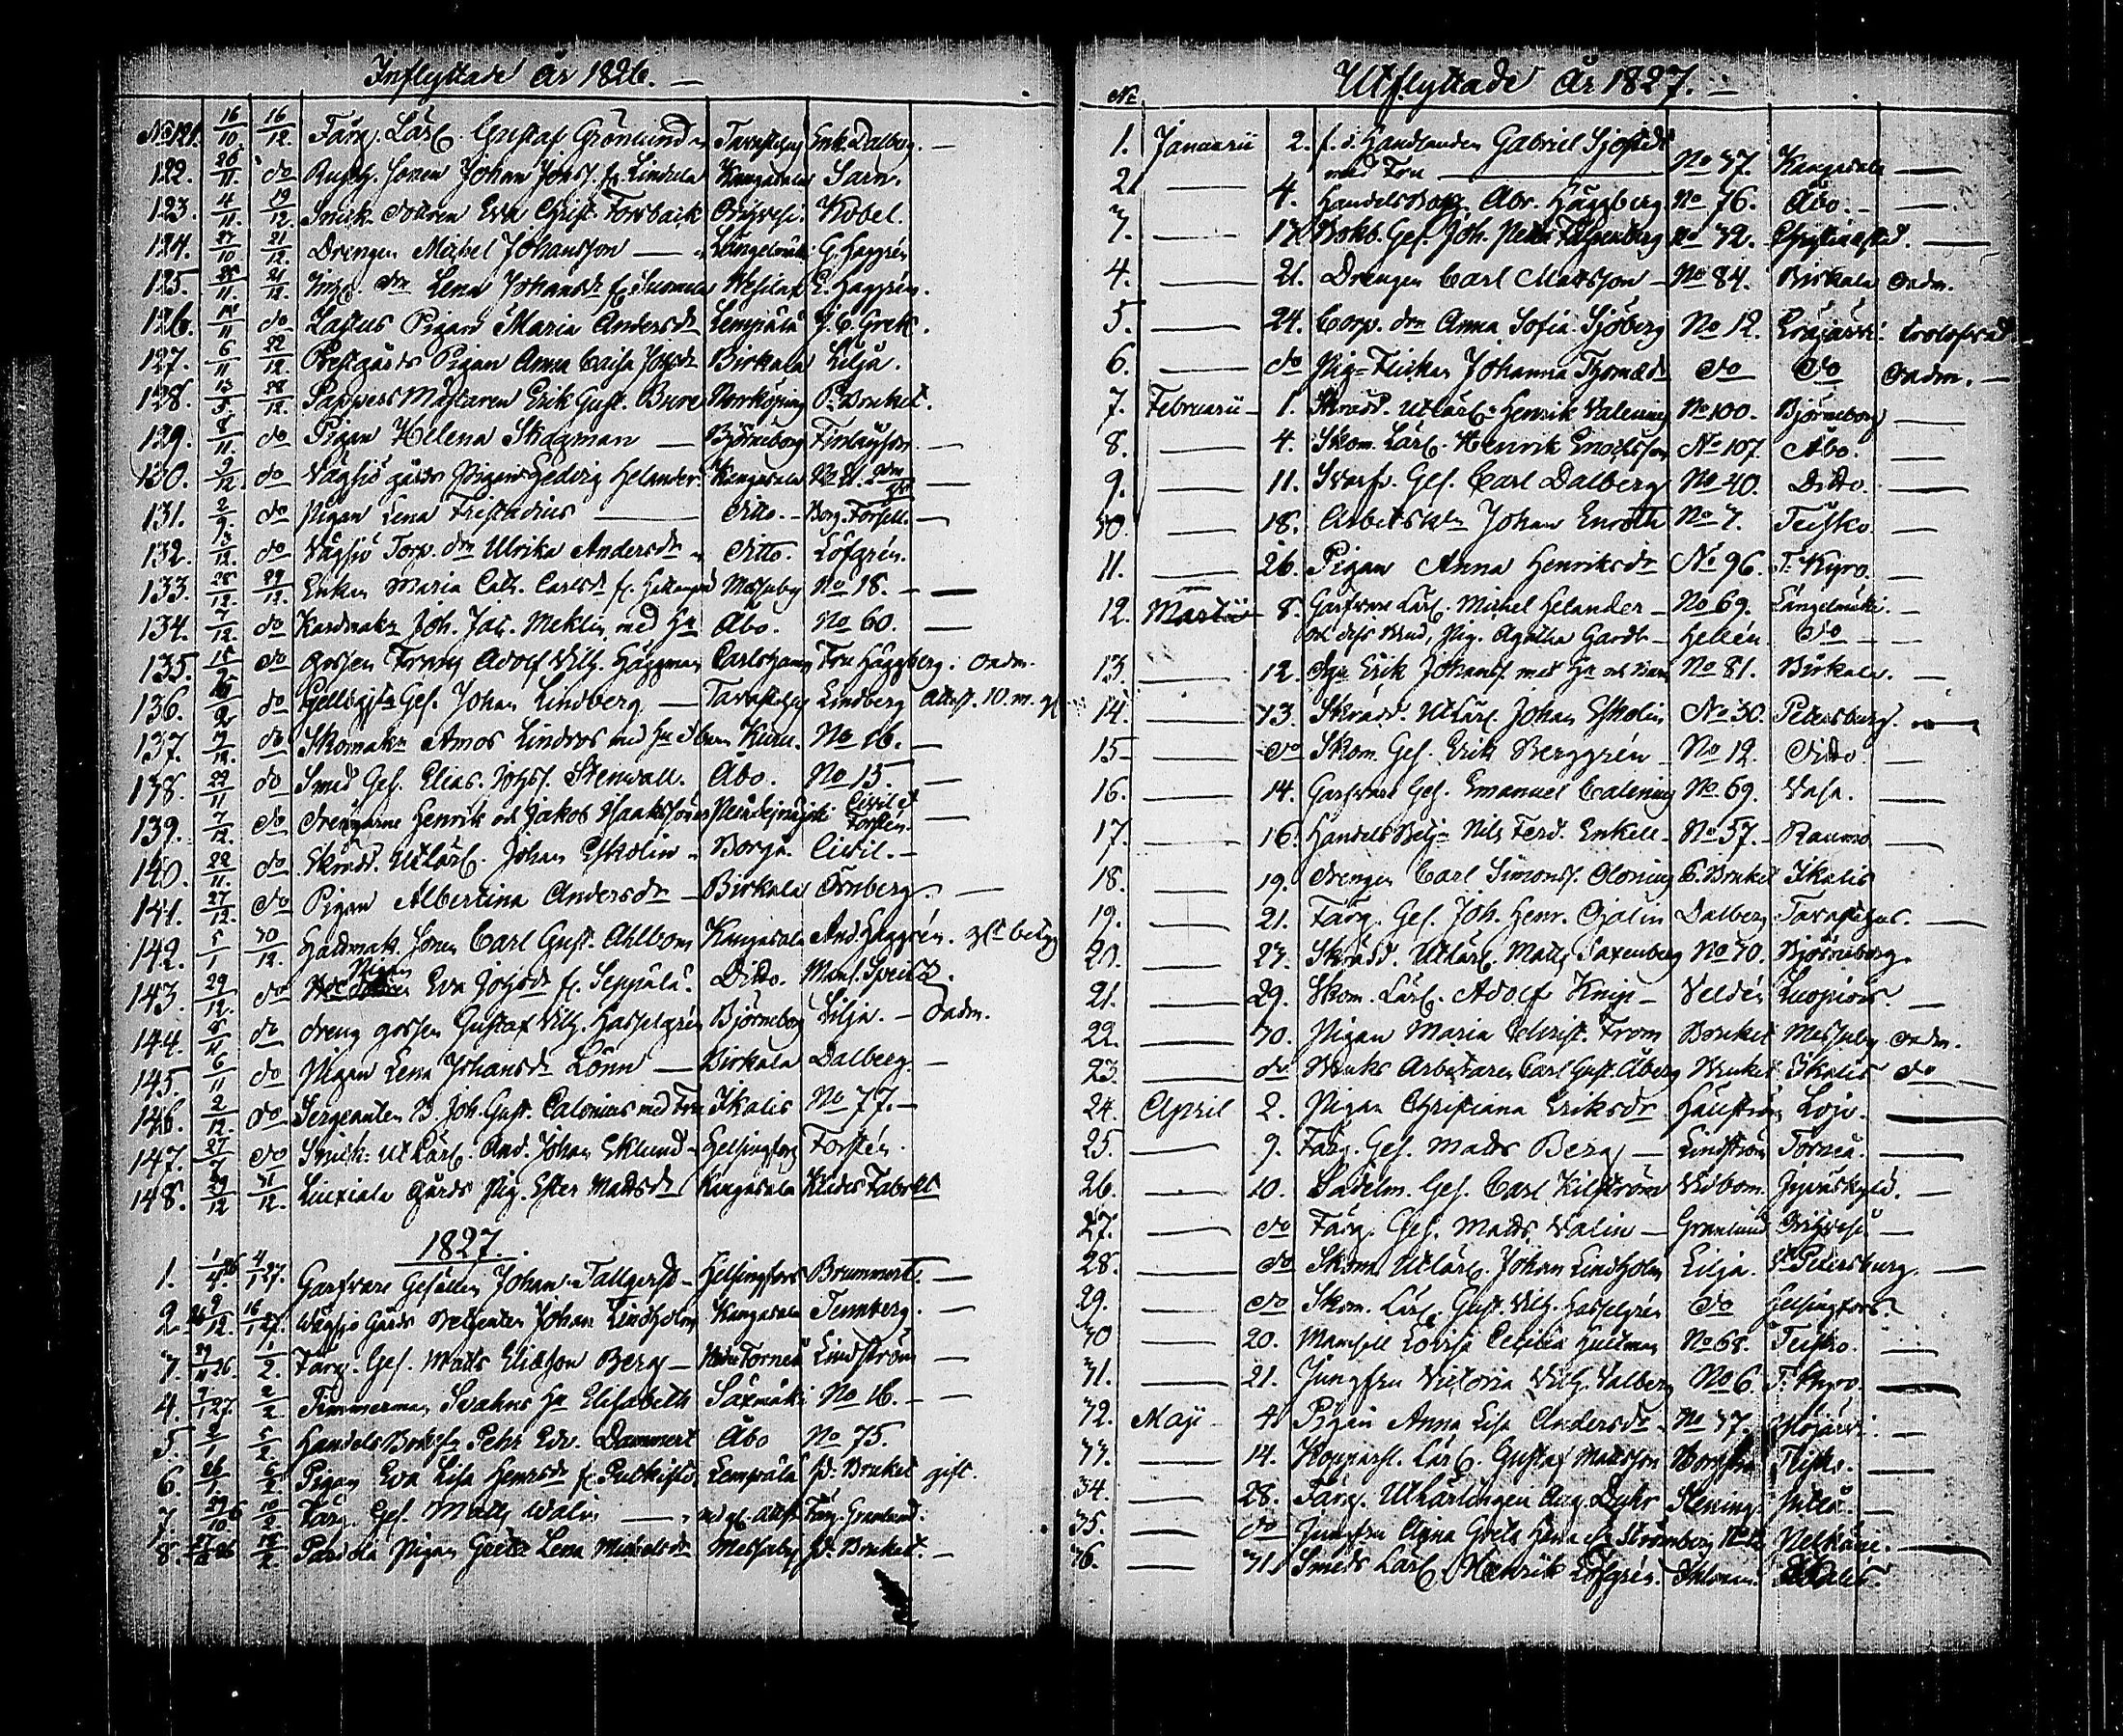 Inflyttade år 1826. —
No 121. 16/10 16/12 Färg. Lärl. Gustaf Grönlund Tavastehus Enk. Dalberg. —
122. 26/11. do Rusth. Sonen Johan Johsf. fr. Lindula Kangasala Sarn.
123. 4/11. 19/12. Snick. Eva Christ. Forsback Orihvesi. Kobel.
124. 27/10 21/12. Drengen Michel Johansson — Längelmäki G. Haggrén
125. 11. 21/12. Lena Johansdr fr. Suomela Vesilax E. Haggrén.
126. 11 do Laurus Pigan Maria Andersdr Lempälä J. C. Grek.
127. 6/11 22/12. Prestgårds Pigan Anna Caisa Johsdr Birkala Lilja.
128. 13/5. 28/12. Pappers Mästaren Erik Gust. Bure Norrköping P. Bruket.
129. 8/11. do Pigan Helena Stegman — Björneborg Finlayson —
130. 9/12. do Vägsjö gårds Pigan Hedvig Helander Kangasala No 81. —
131. 2/9. do Pigan Lena Fristadius — Ditto. — Borg. Forsell. —
132. 3/12. do Vägsjö Torp. dm Ulrika Andersdr Ditto. Löfgrén.
133. 28/12. 29/12. Enkan Maria Cath. Carlsdr fr. Messuby No 18. —
134. 7/12. do Kardmakn Joh. Jak. Meklin med Hu Åbo. No 60. —
135. 15 do Gossen Frans Adolf Vilh. Häggman Carlshamn Fru Häggberg. Oadm.
136. do Gelbgjut. Ges. Johan Lindberg — Tavastehus Lindberg Attest. 10. m. gl.
137. 9/12. do Skomakn Amos Lindros med Hu o barn Kuru. No 16. —
138. 22/11 do Smed Ges. Elias Johsf. Stenvall. Åbo. No 15. —
139. 7/12. do Drengarne Henrik och Jakob Isakssöner Civil & Forstén. —
140. 22/11. do Skradd. Utlärl. Johan Eskolin Borgå. Civil. —
141. 27/12. do Pigan Albertina Andersdr — Birkala Örnberg. —
142. 5/1 30/12. Hattmak. Sonen Carl Gust. Ahlbom Kangasala And. Haggrén. betyg
143. 29/12. do Pigan Eva Johsdr fr. Seppälä. Ditto. Mans. Speitz.
144. 5/11 do Dreng gossen Gustaf Vilh. Hasselgrén Björneborg Lilja. — Oadm.
145. 6/11 do Pigan Lena Johansdr Lönn — Birkala Dalberg. —
146. 2/12. do Sergeanten B. Joh. Gust. Calonius med Fru Ikalis No 77. —
147. 27/7 do Snick. Utlärl. And. Johan Eklund — Helsingfors Forstén.
148. 29/12 31/12. Liuxiala Gårds Pig. Ester Mattsdr Kangasala Klädes Fabrik
1827.
1. 1/4 26 4/1 27. Garfvare Gesällen Johan Tallgerst — Helsingfors Brummert. —
2. 26 9/12. 16/1 27. Vägsjö Gårds Johan Lindholm Kangasala Tennberg. —
3. 29/11 26 1/2. Färg. Ges. Matts Eliasson Berg — Torneå Lindström —
4. 7/1 27. 2/2. Timmerman Svahns Hu Elisabeth Säxmäki No 16. —
5. 2/1 5/2. Handels Bokh. Pehr Edv. Dammert Åbo No 75.
6. 26/1. 6/2 Pigan Eva Lisa Henrsdr fr. Lempälä P. Bruket gift.
7. 29/10 26 10/2 Färg. Ges. Matts Walin — med gl. Attest Färg. Granlund.
8. 26 12/2. Parola Pigan Greta Lena Michelsdr Messuby P. Bruket. —
Utflyttade år 1827. —
No
1. Januarii 2. f. d. Handlanden Gabriel Sjöstedt
med Fru — No 37. Kangasala —
2. — 4. Handelsbokh. Abr. Häggberg No 76. Åbo. —
3. — 17. Bokb. Ges. Joh. Petter Falkenberg No 32. Christinestad. —
4. — 21. Drengen Carl Mattsson — No 84. Birkala Oadm.
5. — 24. Corp. dm Anna Sofia Sjöberg No 12. Eräjärvi.
6. — do Pig-Flickan Johanna Thomædr do do Oadm. —
7. Februarii — 1. Skradd. Utlärl. Henrik Valenius No 100. Björneborg —
8. — 4. Skom. Lärl. Henrik Enocksson No 107. Åbo. —
9. — 11. Svarfv. Ges. Carl Dalberg No 40. Ditto. —
10. — 18. Arbetskn Johan Enroth No 7. Teisko. —
11. — 26. Pigan Anna Henriksdr No 96. T. Kyro. —
12. Martii 8. Garfvare Lärl. Michel Helander — No 69. Längelmäki. —
och dess Brud, Pig. Agatha Gardt — Hellén. do —
13. — 12. Erik Johansf. med Hu och Barn No 81. Birkala. —
14. — 13. Skradd. Utlärl. Johan Eskolin No 30. Petersburg. —
15 — do Skom. Ges. Erik Berggrén No 12. Ditto. —
16. — 14. Garfvare Ges. Emanuel Calenius No 69. Vasa. —
17. — 16. Handels Betj. Nils Ferd. Enkell — No 57. Raumo —
18. — 19. Drengen Carl Simonsf. Olonius P. Bruket Ikalis
19. — 21. Färg. Ges. Joh. Henr. Ojalin Dalberg Tavastehus. —
20. — 27. Skradd. Utlärl. Matts Saxenberg No 30. Björneborg.
21. — 29. Skom. Lärl. Adolf Knip — Veldén Luopiois. —
22. — 30. Pigan Maria Christ. From Bruket Messuby Oadm.
23. — do Bruks Arbetaren Carl Gust. Åberg Bruket Ikalis do
24. April 2. Pigan Christiana Eriksdr Hällström Lojo. —
25. — 9. Färg. Ges. Matts Berg — Lindström Torneå. —
26. — 10. Sadelm. Ges. Carl Kihlström Vidbom. Jyväskylä. —
27. — do Färg. Ges. Matts Valin — Granlund Orihvesi —
28. — do Skom. Utlärl. Johan Lindholm Lilja. St. Petersburg. —
29. — do Skom. Lärl. Gust. Vilh. Hasselgrén do Helsingfors.
30 — 20. Mamsell Lovisa Cecilia Hultman No 68. Teisko. —
31. — 21. Jungfru Victoria Vilh. Valberg No 6. T. Kyro. —
32. Maji — 4. Pigan Anna Lisa Andersdr. No 37. —
33. — 14. Kopparsl. Lärl. Gustaf Mattsson Teisko. —
34. — 28. Färg. Utlärlingen Aug. Duhr Stening. —
35. — do Jungfru Agna Greta Strömberg Pelkäne. —
36. — 31. Smeds Lärl. Henrik Löfgrén. Ikalis.